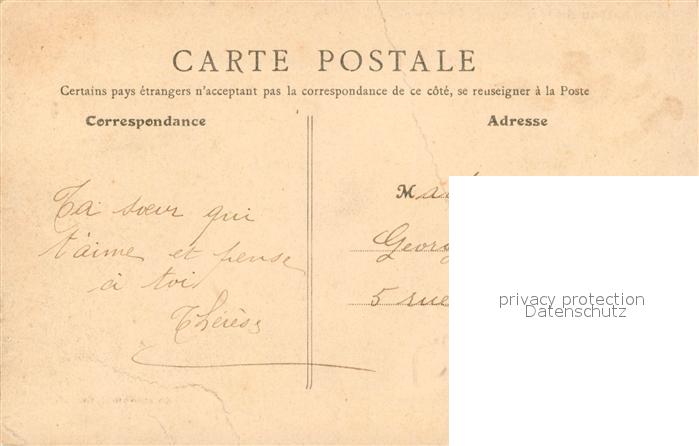 CARTE POSTALE
Certains pays étrangers n'acceptant pas la correspondance de ce côté, se reuseigner à la Poste
Correspondance
Adresse
Ta sœur qui
t'aime et pense
à toi
Thérèse
M
Georg
5 rue
privacy protection
Datenschutz